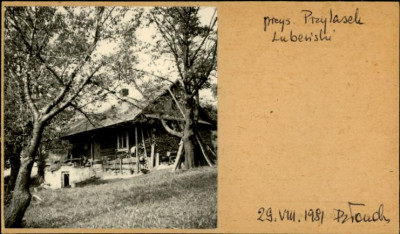 przys. Przylasek
Lubeński
29.VIII.1981